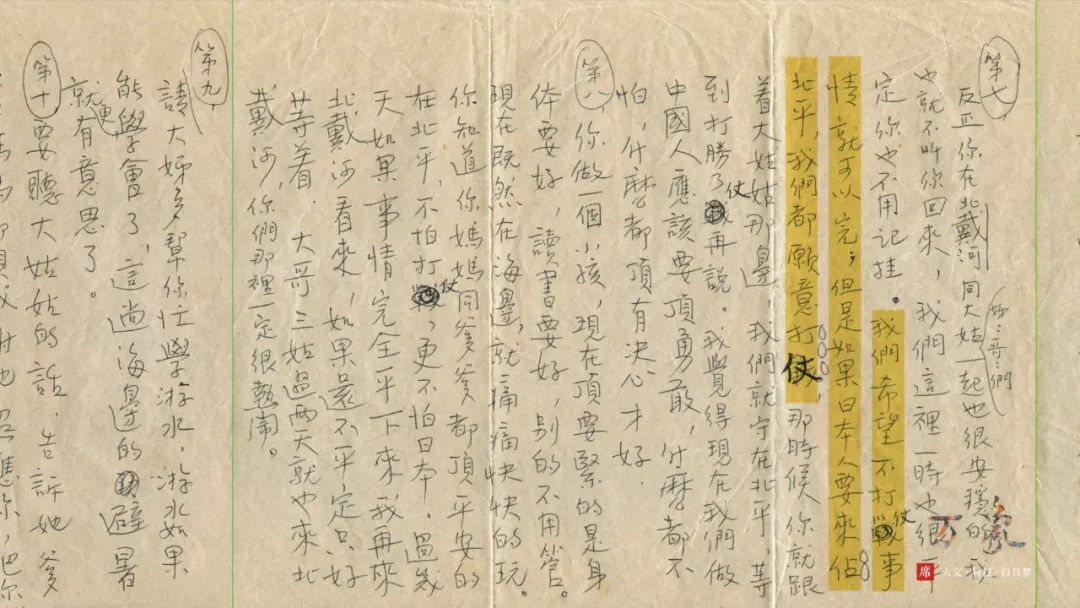 第七
反正你在北戴河同大姑一起也很安穩的我
姊姊哥哥們
也就不叫你回來。我們這裡一時也很平
定，你也不用记挂。我們希望不打仗事
情就可以完；但是如果日本人要來佔
北平，我們都願意打仗，那時候你就跟
着大姑姑那邊，我們就守在北平，等
到打勝了仗再說。我覺得現在我們做
中國人應該要頂勇敢，什麼都不
怕，什麼都頂有決心才好。
第八
你做一個小孩，現在頂要緊的是身
体要好，讀書要好，别的不用管。
現在既然在海邊，就痛痛快快的玩。
你知道你媽媽同爹爹都頂平安的
在北平，不怕打仗，更不怕日本。過幾
天如果事情完全平下來，我再來
北戴河看來，如果還不平定，只好
等着。大哥三姑過兩天就也來北
戴河，你們那裡一定很熱鬧。
第九
請大姊多幫你忙學游水。游水如果
能學會了，這趟海邊的避暑
就更有意思了。
第十
要聽大姑姑的話。告訴她爹